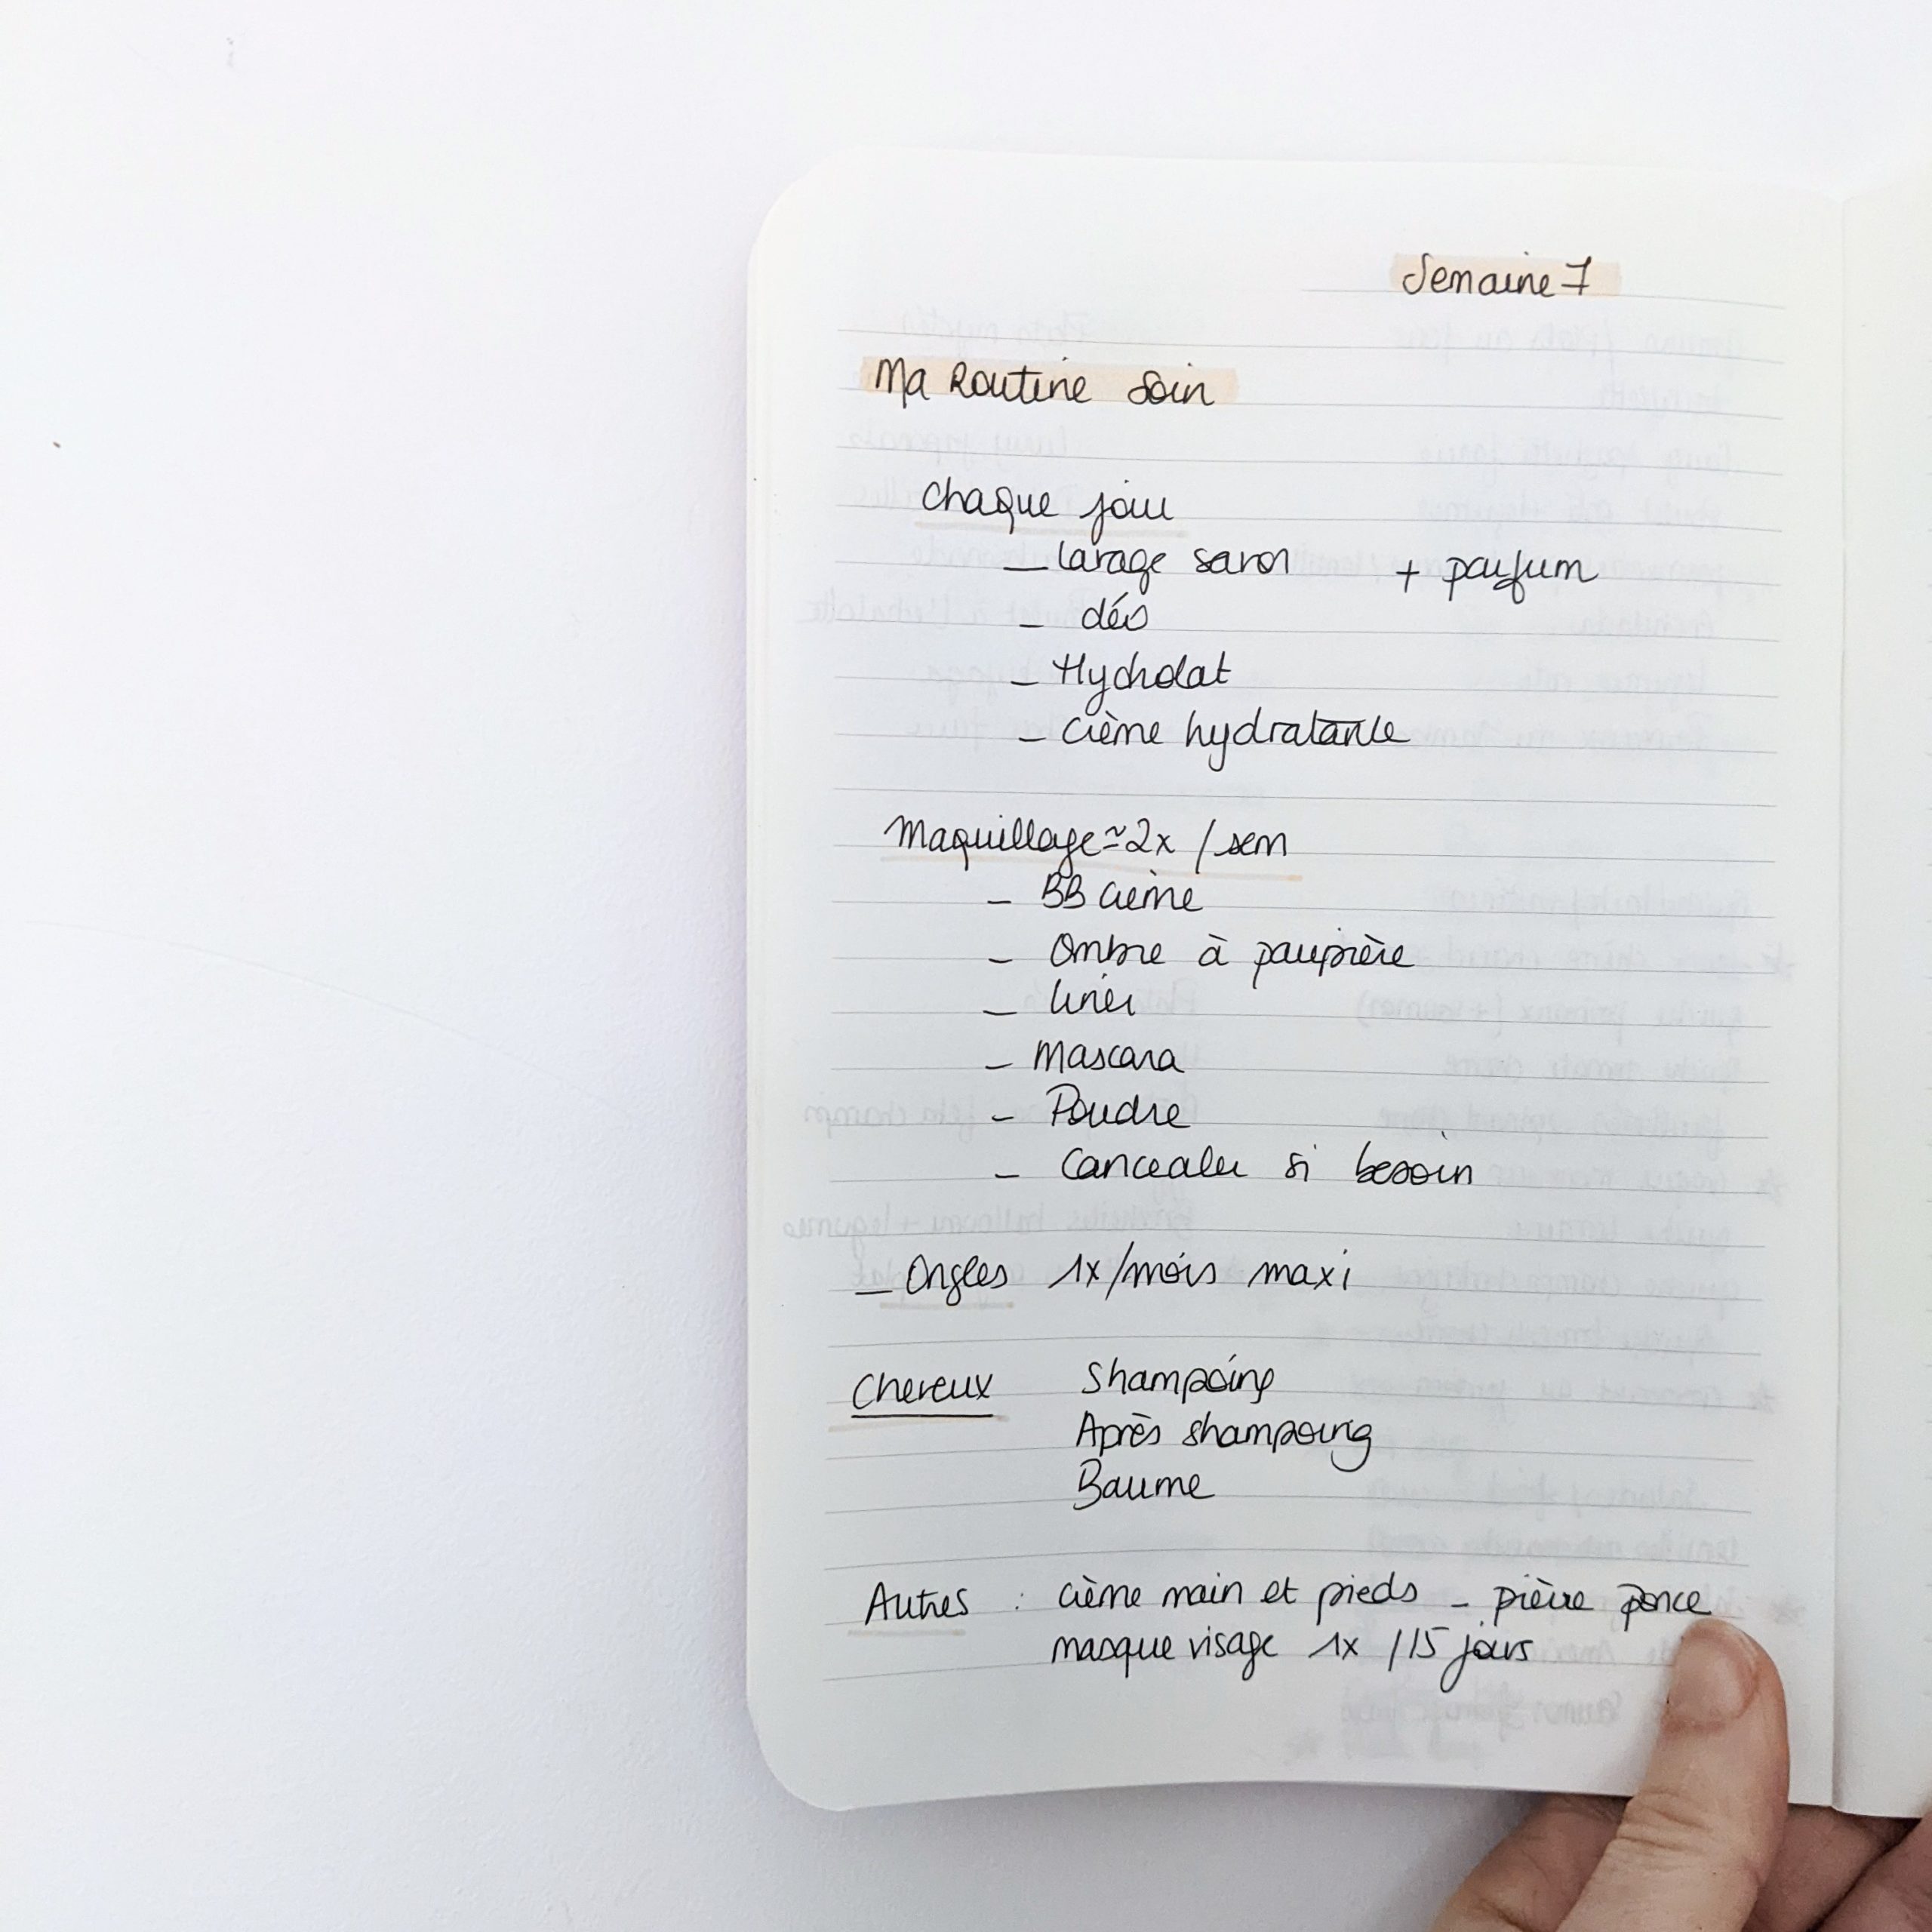 Semaine 7
Ma Routine soin
chaque jour
- lavage savon + parfum
- déo
- Hydrolat
- crème hydratante
Maquillage ≃ 2x / sem
- BB crème
- Ombre à paupière
- liner
- Mascara
- Poudre
- Cancealer si besoin
- Ongles 1x/mois maxi
Cheveux Shampoing
Après shampoing
Baume
Autres : crème main et pieds - pierre ponce
masque visage 1x /15 jours